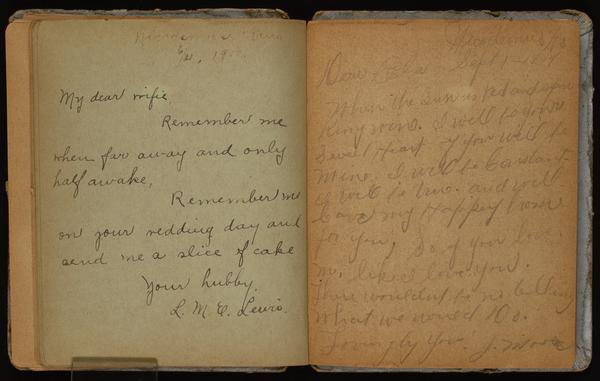 My dear wifie,
Remember me
when far away and only
half awake,
Remember me
on your wedding day and
send me a slice of cake
Your hubby,
L. M. C. Lewis.
Dear
When the sun is
I will be your
Sweet Heart if you will be
Mine. I will be Constant
I will be true. and will
my Happy home
for you, So if you love
me like I love you.
there wouldn't be no telling
what we would do.
Lovingly you. J. Moore